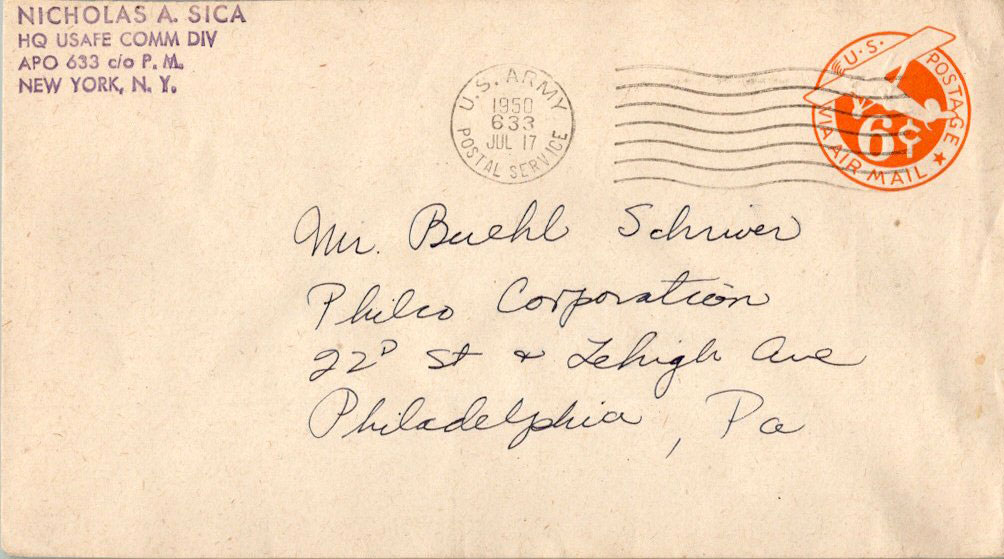 NICHOLAS A. SICA
HQ USAFE COMM DIV
APO 633 c/o P. M.
NEW YORK, N. Y.
U.S. ARMY
1950
633
JUL 17
POSTAL SERVICE
U.S. POSTAGE
6¢
VIA AIR MAIL
Mr. Buehl Schriver
Philco Corporation
22D St & Lehigh Ave
Philadelphia, Pa